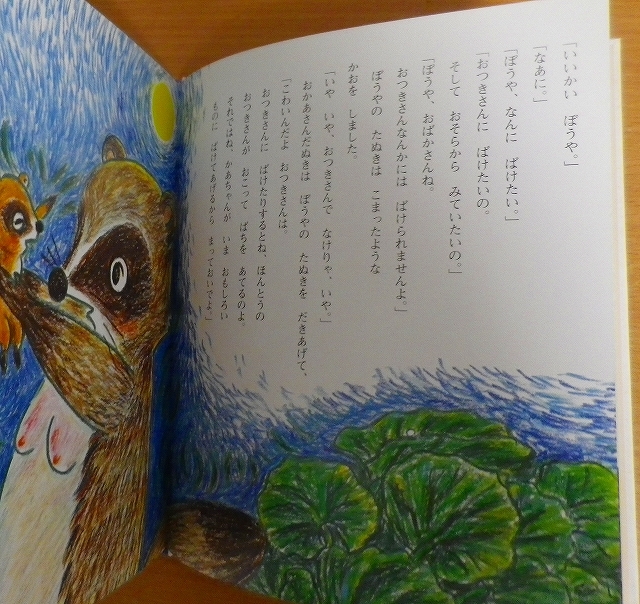 「いいかい　ぼうや。」
「なあに。」
「ぼうや、なんに　ばけたい。」
「おつきさんに　ばけたいの。
そして　おそらから　みていたいの。」
「ぼうや、おばかさんね。
おつきさんなんかには　ばけられませんよ。」
ぼうやの　たぬきは　こまったような
かおを　しました。
「いや　いや、おつきさんで　なけりゃ、いや。」
おかあさんだぬきは　ぼうやの　たぬきを　だきあげて、
「こわいんだよ　おつきさんは。
おつきさんに　ばけたりするとね、ほんとうの
おつきさんが　おこって　ばちを　あてるのよ。
それではね、かあちゃんが　いま　おもしろい
ものに　ばけてあげるから　まっておいでよ。」